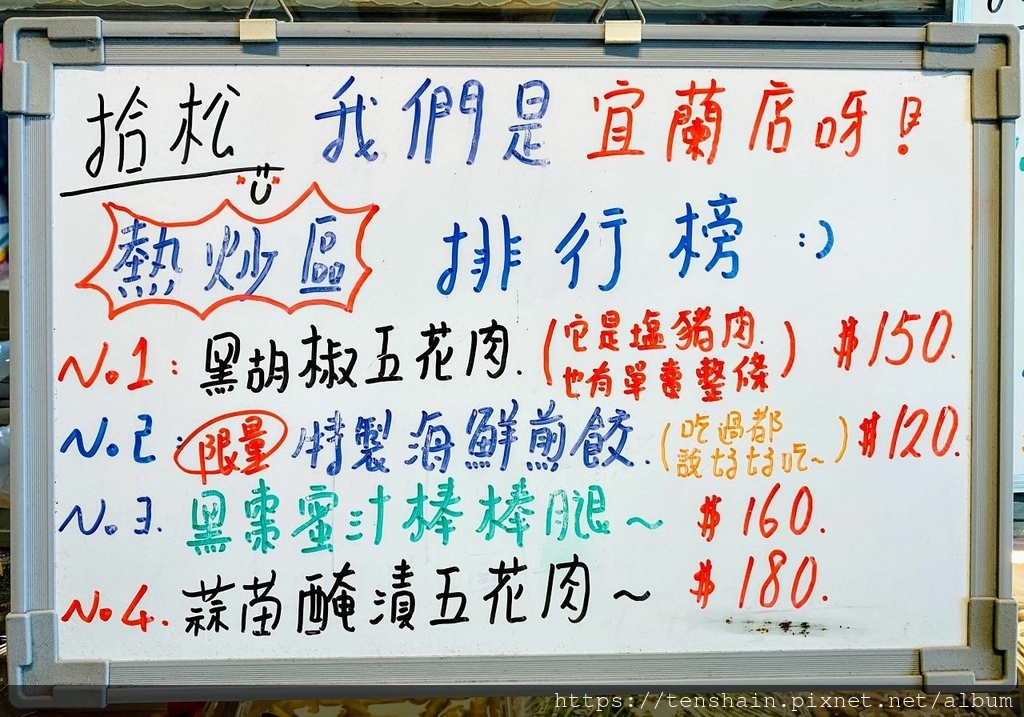 拾松 我們是宜蘭店呀!
熱炒區 排行榜 :)
No.1: 黑胡椒五花肉. (它是塩豬肉. 也有單賣整條) $150.
No.2: 限量 特製海鮮煎餃. (吃過都說好好吃~) $120.
No.3. 黑棗蜜汁棒棒腿~ $160.
No.4. 蒜苗醃漬五花肉~ $180.
https://tenshain.pixnet.net/album